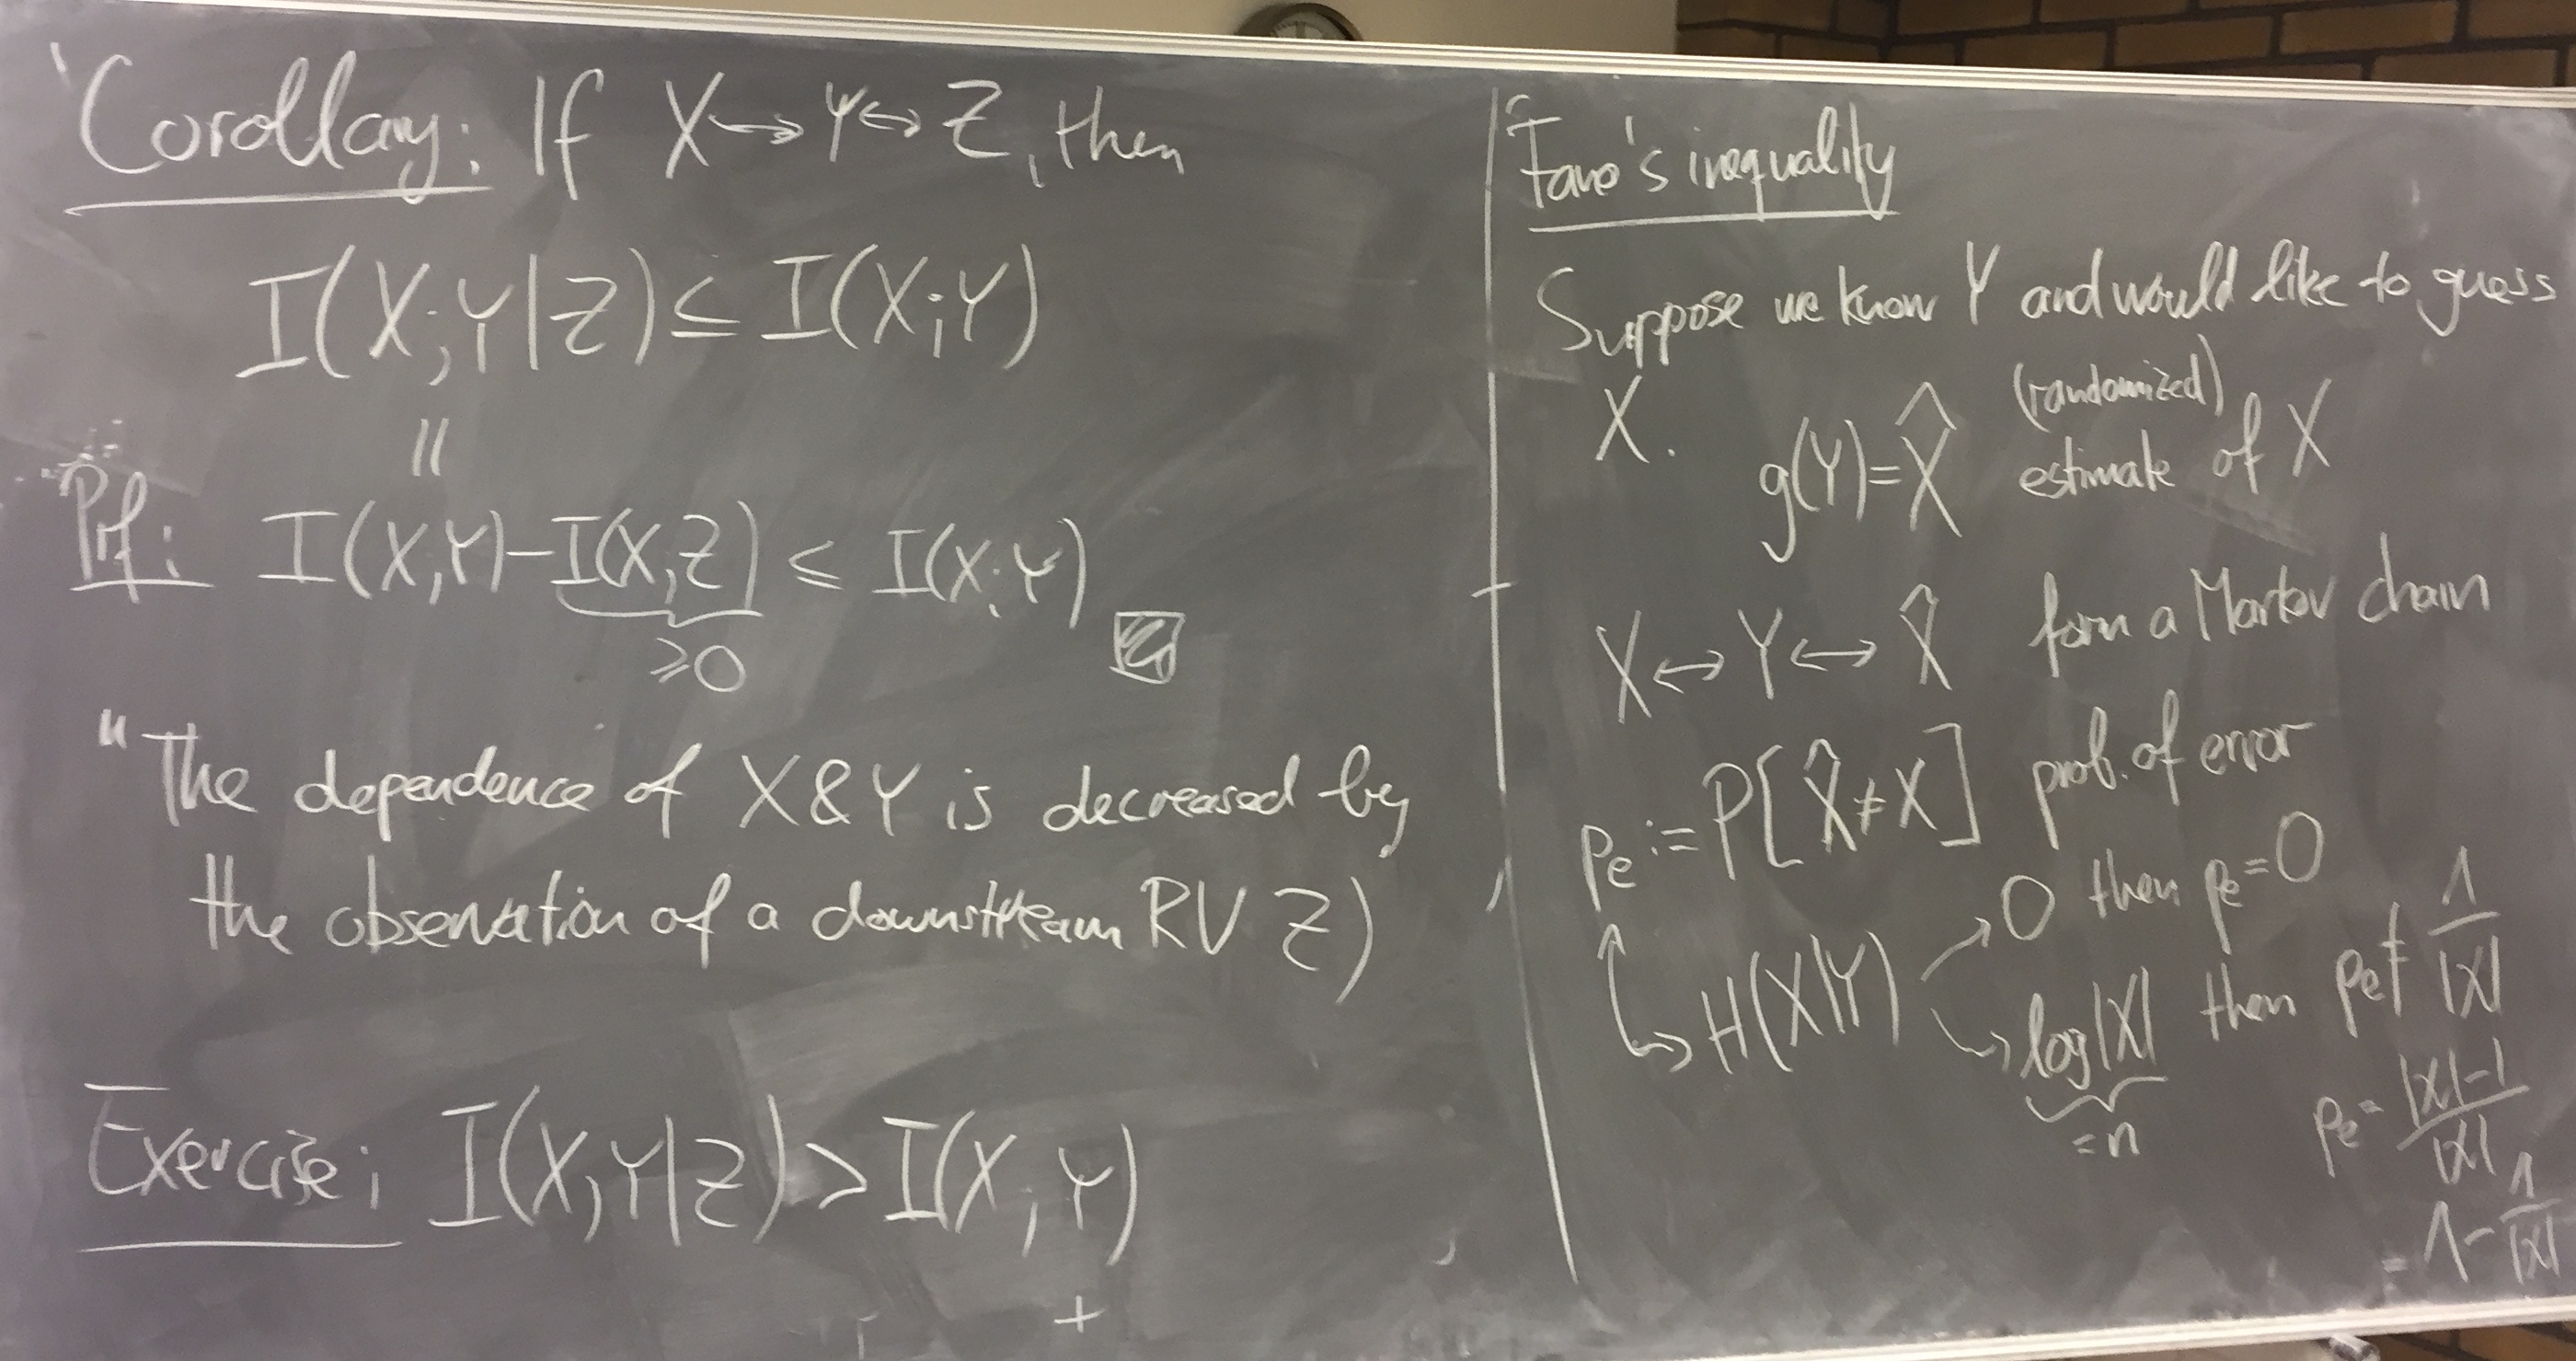 Corollary: If X↔Y↔Z, then
I(X;Y|Z) ≤ I(X;Y)
||
Pf: I(X;Y)-I(X;Z) ≤ I(X;Y)
≥0
"The dependence of X & Y is decreased by
the observation of a downstream RV Z)
Exercise: I(X;Y|Z) > I(X;Y)
Fano's inequality
Suppose we know Y and would like to guess
X.
(randomized)
g(Y)=X̂ estimate of X
X↔Y↔X̂ form a Markov chain
pe := P[X̂≠X] prob. of error
0 then pe=0
H(X|Y)
log|X| then pe≠ 1/|X|
=n
pe= |X|-1/|X|
= 1 - 1/|X|